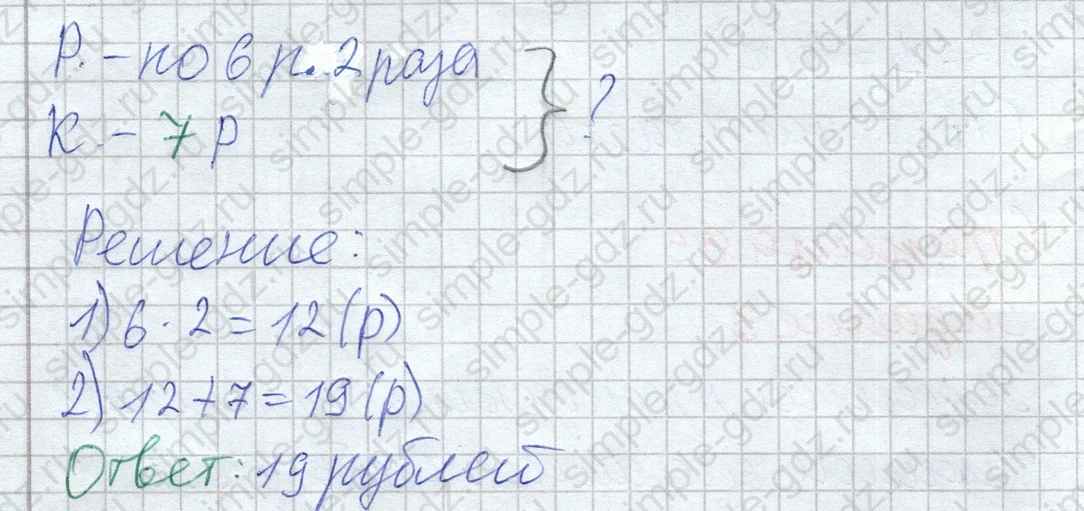 Р. - по 6 р. 2 раза
К. - 7 р
?
Решение:
1) 6 · 2 = 12 (р)
2) 12 + 7 = 19 (р)
Ответ: 19 рублей
simple-gdz.ru